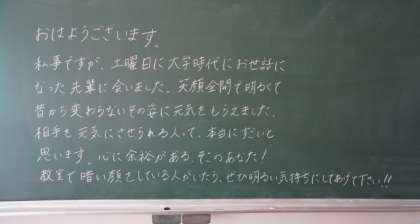 おはようございます。
私事ですが、土曜日に大学時代にお世話に
なった先輩に会いました。笑顔全開で明るくて
昔から変わらないその姿に元気をもらえました。
相手を元気にさせられる人って、本当にすごいと
思います。心に余裕がある、そこのあなた!
教室で暗い顔をしている人がいたら、ぜひ明るい気持ちにしてあげて下さい!!